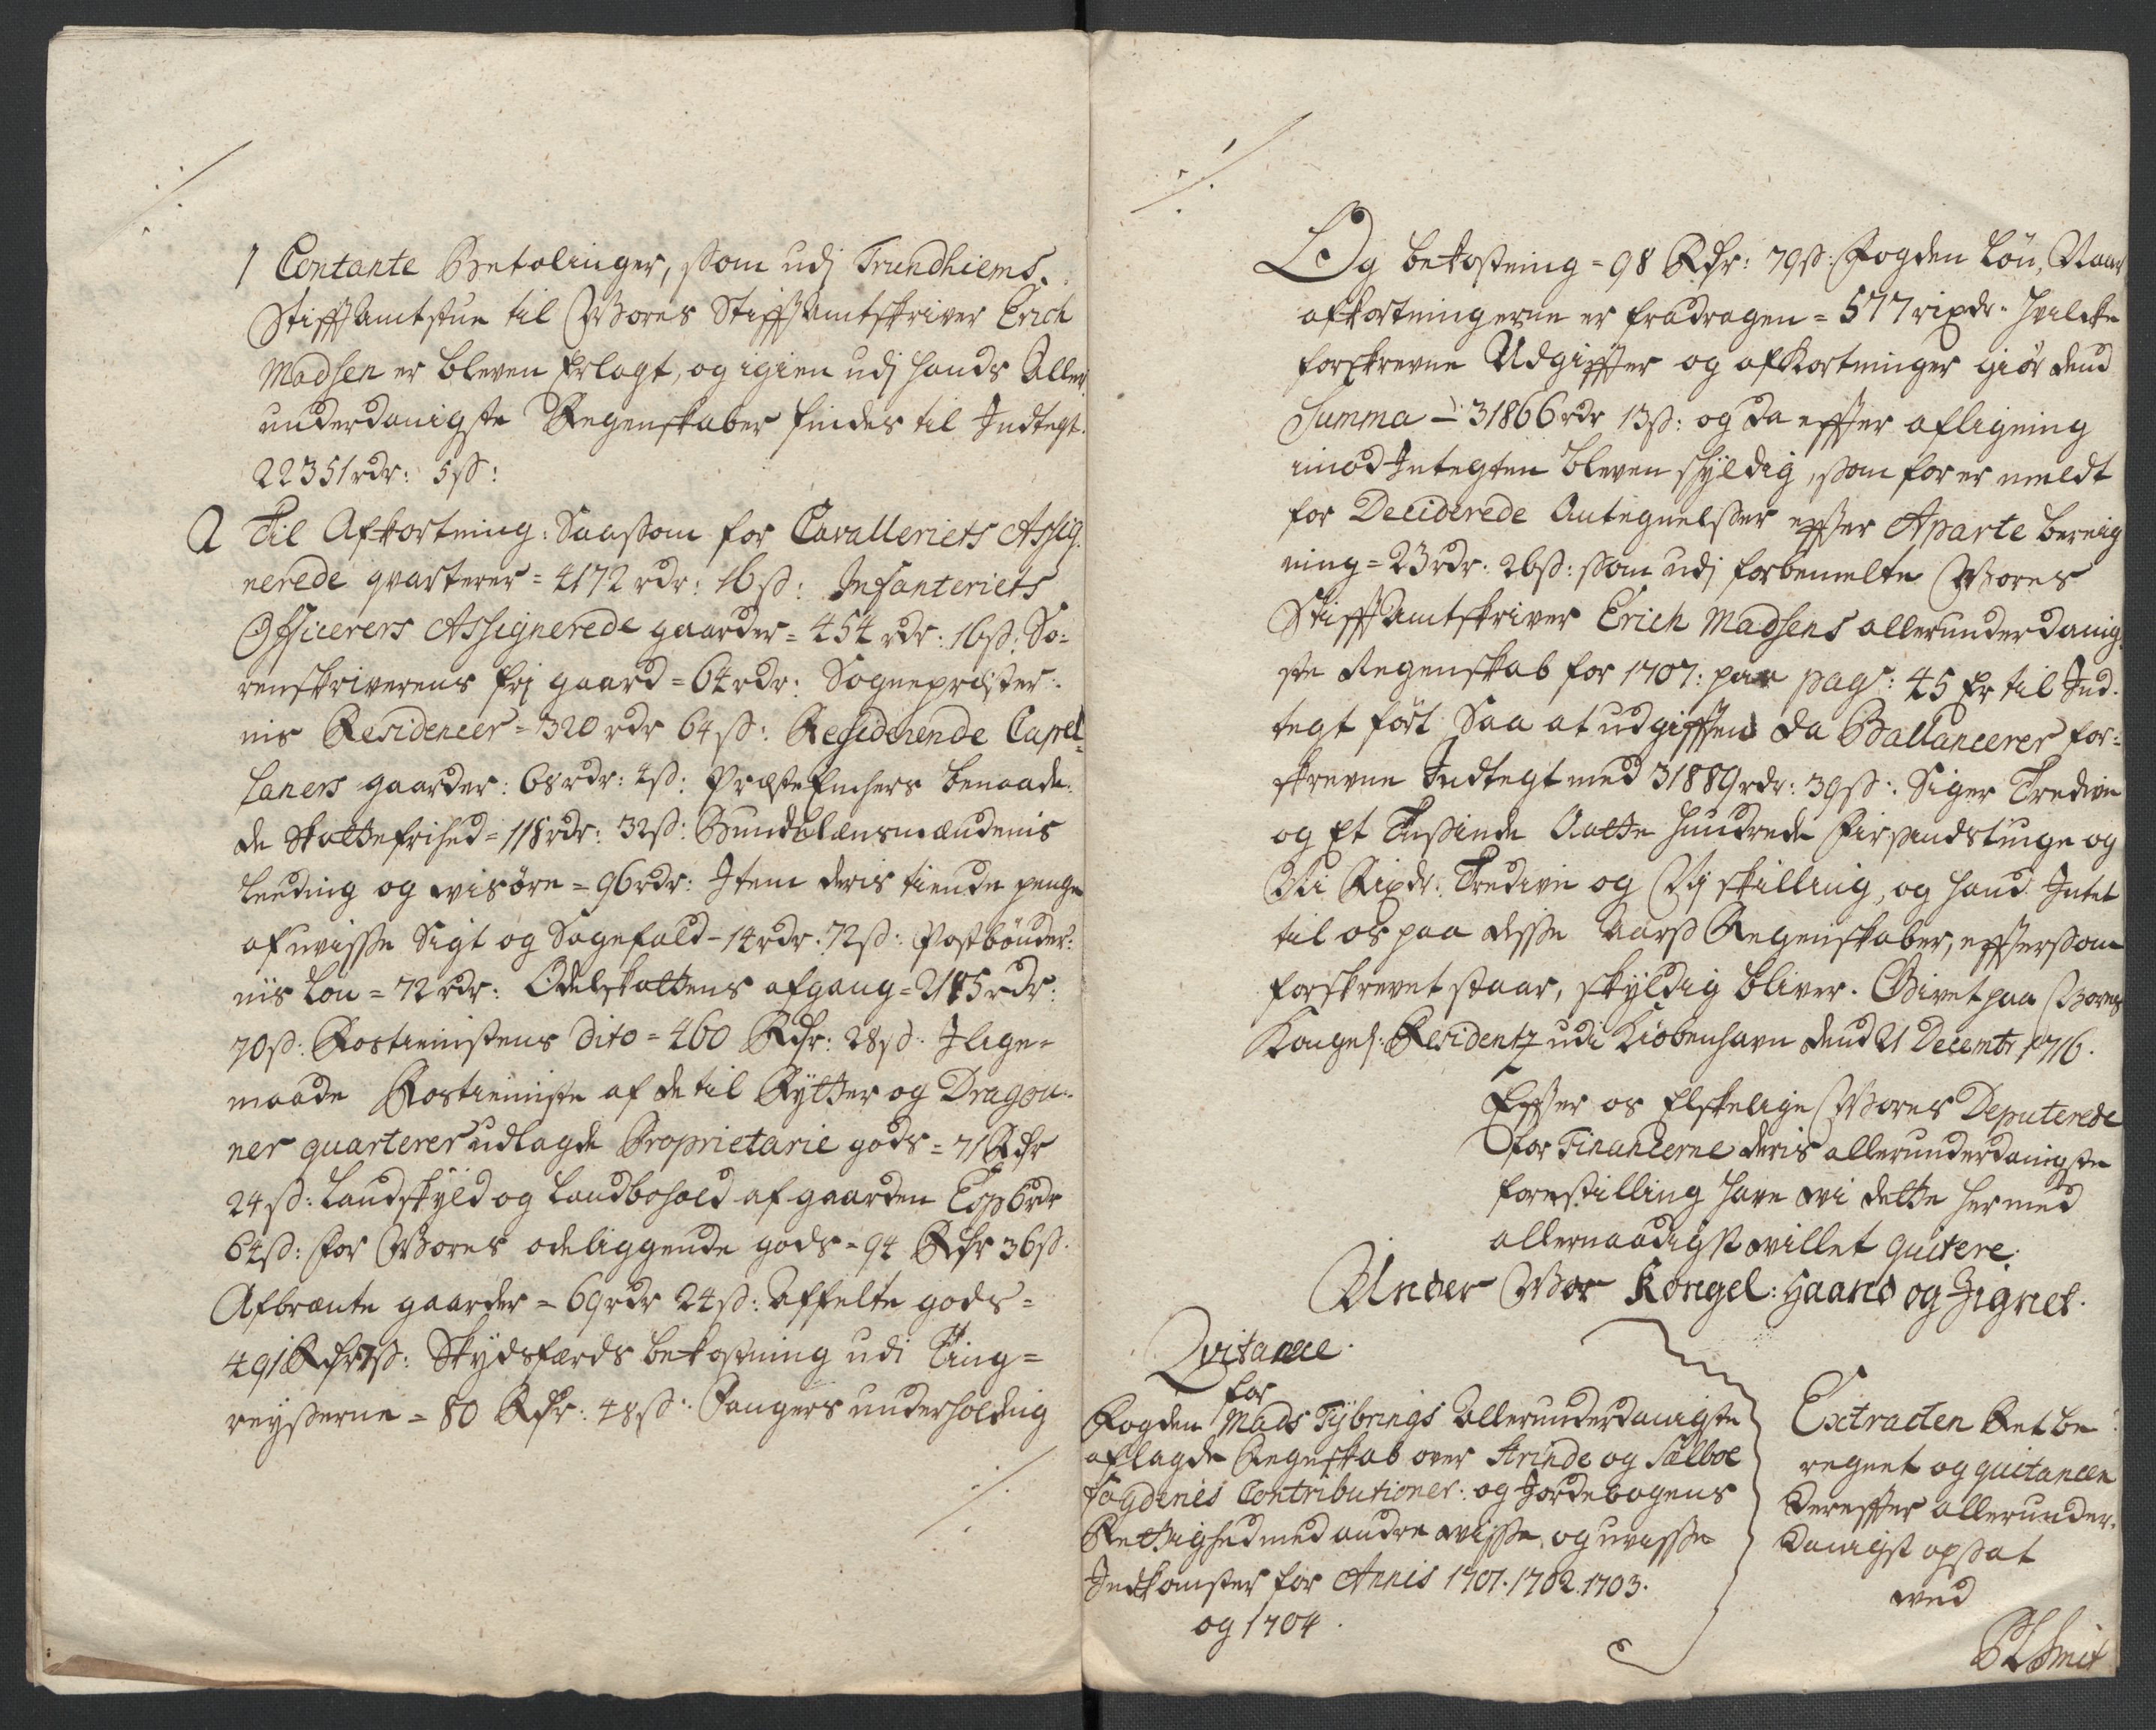 1 Contante Betalinger, som udj Trundhiems
Stiffamtstue til Wores Stiffamtskriver Erich
Madsen er bleven Erlagt, og igien udj hands Aller
underdanigste Regenskaber findes til Indtegt.
22351 rdr: 5 ß:
2 Til Afkortning: Saasom for Cavalleriets Assig-
nerede qvarterer = 4172 rdr: 16 ß: Infanteriets
Officerers Assignerede gaarder = 454 rdr: 16 ß: So-
renskriverens frj gaard = 64 rdr: Sognepræster-
nis Residencer = 320 rdr 64 ß: Residerende Capel-
laners gaarder: 68 rdr: 4 ß: Præste Enchers benaade-
de Skattefrihed = 118 rdr: 32 ß: Bundelænsmændenis
Leeding og wisøre = 96 rdr: Item deris tiende penge
af uvisse Sigt og Sagefald - 14 rdr: 72 ß: Postbønder-
nis Løn = 72 rdr: Odelskattens afgang = 2145 rdr:
70 ß: Rostienistens dito = 460 Rdr: 28 ß. Jlige-
maade Rostieniste af de til Rytter og Dragou-
ner quarterer udlagde Proprietarie gods = 71 Rdr
24 ß: Landskyld og Landbohold af gaarden Esp 6 rdr
64 ß: for Wores ødeliggende gods = 94 Rdr 36 ß.
Afbrænte gaarder = 69 rdr 24 ß: Affelte gods =
491 Rdr 7 ß: Skydsfærds bekostning udi Ting=
reyserne = 80 Rdr: 48 ß: Fangers underholdnig
Og bekostning = 98 Rdr: 79 ß: Fogden Løn, Naar
afkortningerne er fradragen = 577 rixdr. Hvilcke
forskrevne Udgiffter og afkortninger giør dend
Summa - 31866 rdr 13 ß: og da effter afligning
imod Integten bleven skyldig, som for er meldt
for Deciderede Antegnelsser effter Aparte bereig
ning = 23 rdr: 26 ß: som udj forbemelte Wores
Stiffamtskriver Erich Madsens allerunderdanig-
ste Regenskab for 1707: paa pag: 45 Er til Ind-
tegt ført Saa at udgifften da Ballancerer for-
skrevne Indtegt med 31889 rdr: 39 ß: Siger Tredive
og Et Tusinde Aatte Hundrede Firsindstiuge og
Ni Rixdr: Tredive og Nj skilling, og hand Intet
til os paa disse Aars Regenskaber, effterssom
forskrevet staar, skyldig bliver. Givet paa Wores
Kongel: Residentz udi Kiøbenhavn dend 21 Decembr 1716.
Effter os Elskelige Wores Deputerede
for Financerne deris allerunderdanigste
forestilling have wi dette hermed
allernaadigst willet quitere.
Under Wor Kongel: Haand og Zignet.
Qvitance
for
Fogden Mads Tybrings Allerunderdanigste
aflagde Regnskab over Strinde og Sælboe
Fogderies Contributioner: og Jordebogens
Rettighed med andre wisse og uvisse
Indkomster for Annis 1701. 1702. 1703.
og 1704.
Extracten Ret be-
regnet og quitancen
dereffter allerunder-
danigst opsat
wed